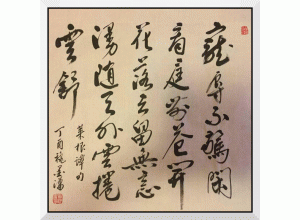 寵辱不驚閑
看庭前花開
花落去留無意
漫随天外雲捲
雲舒
菜根譚句
丁酉